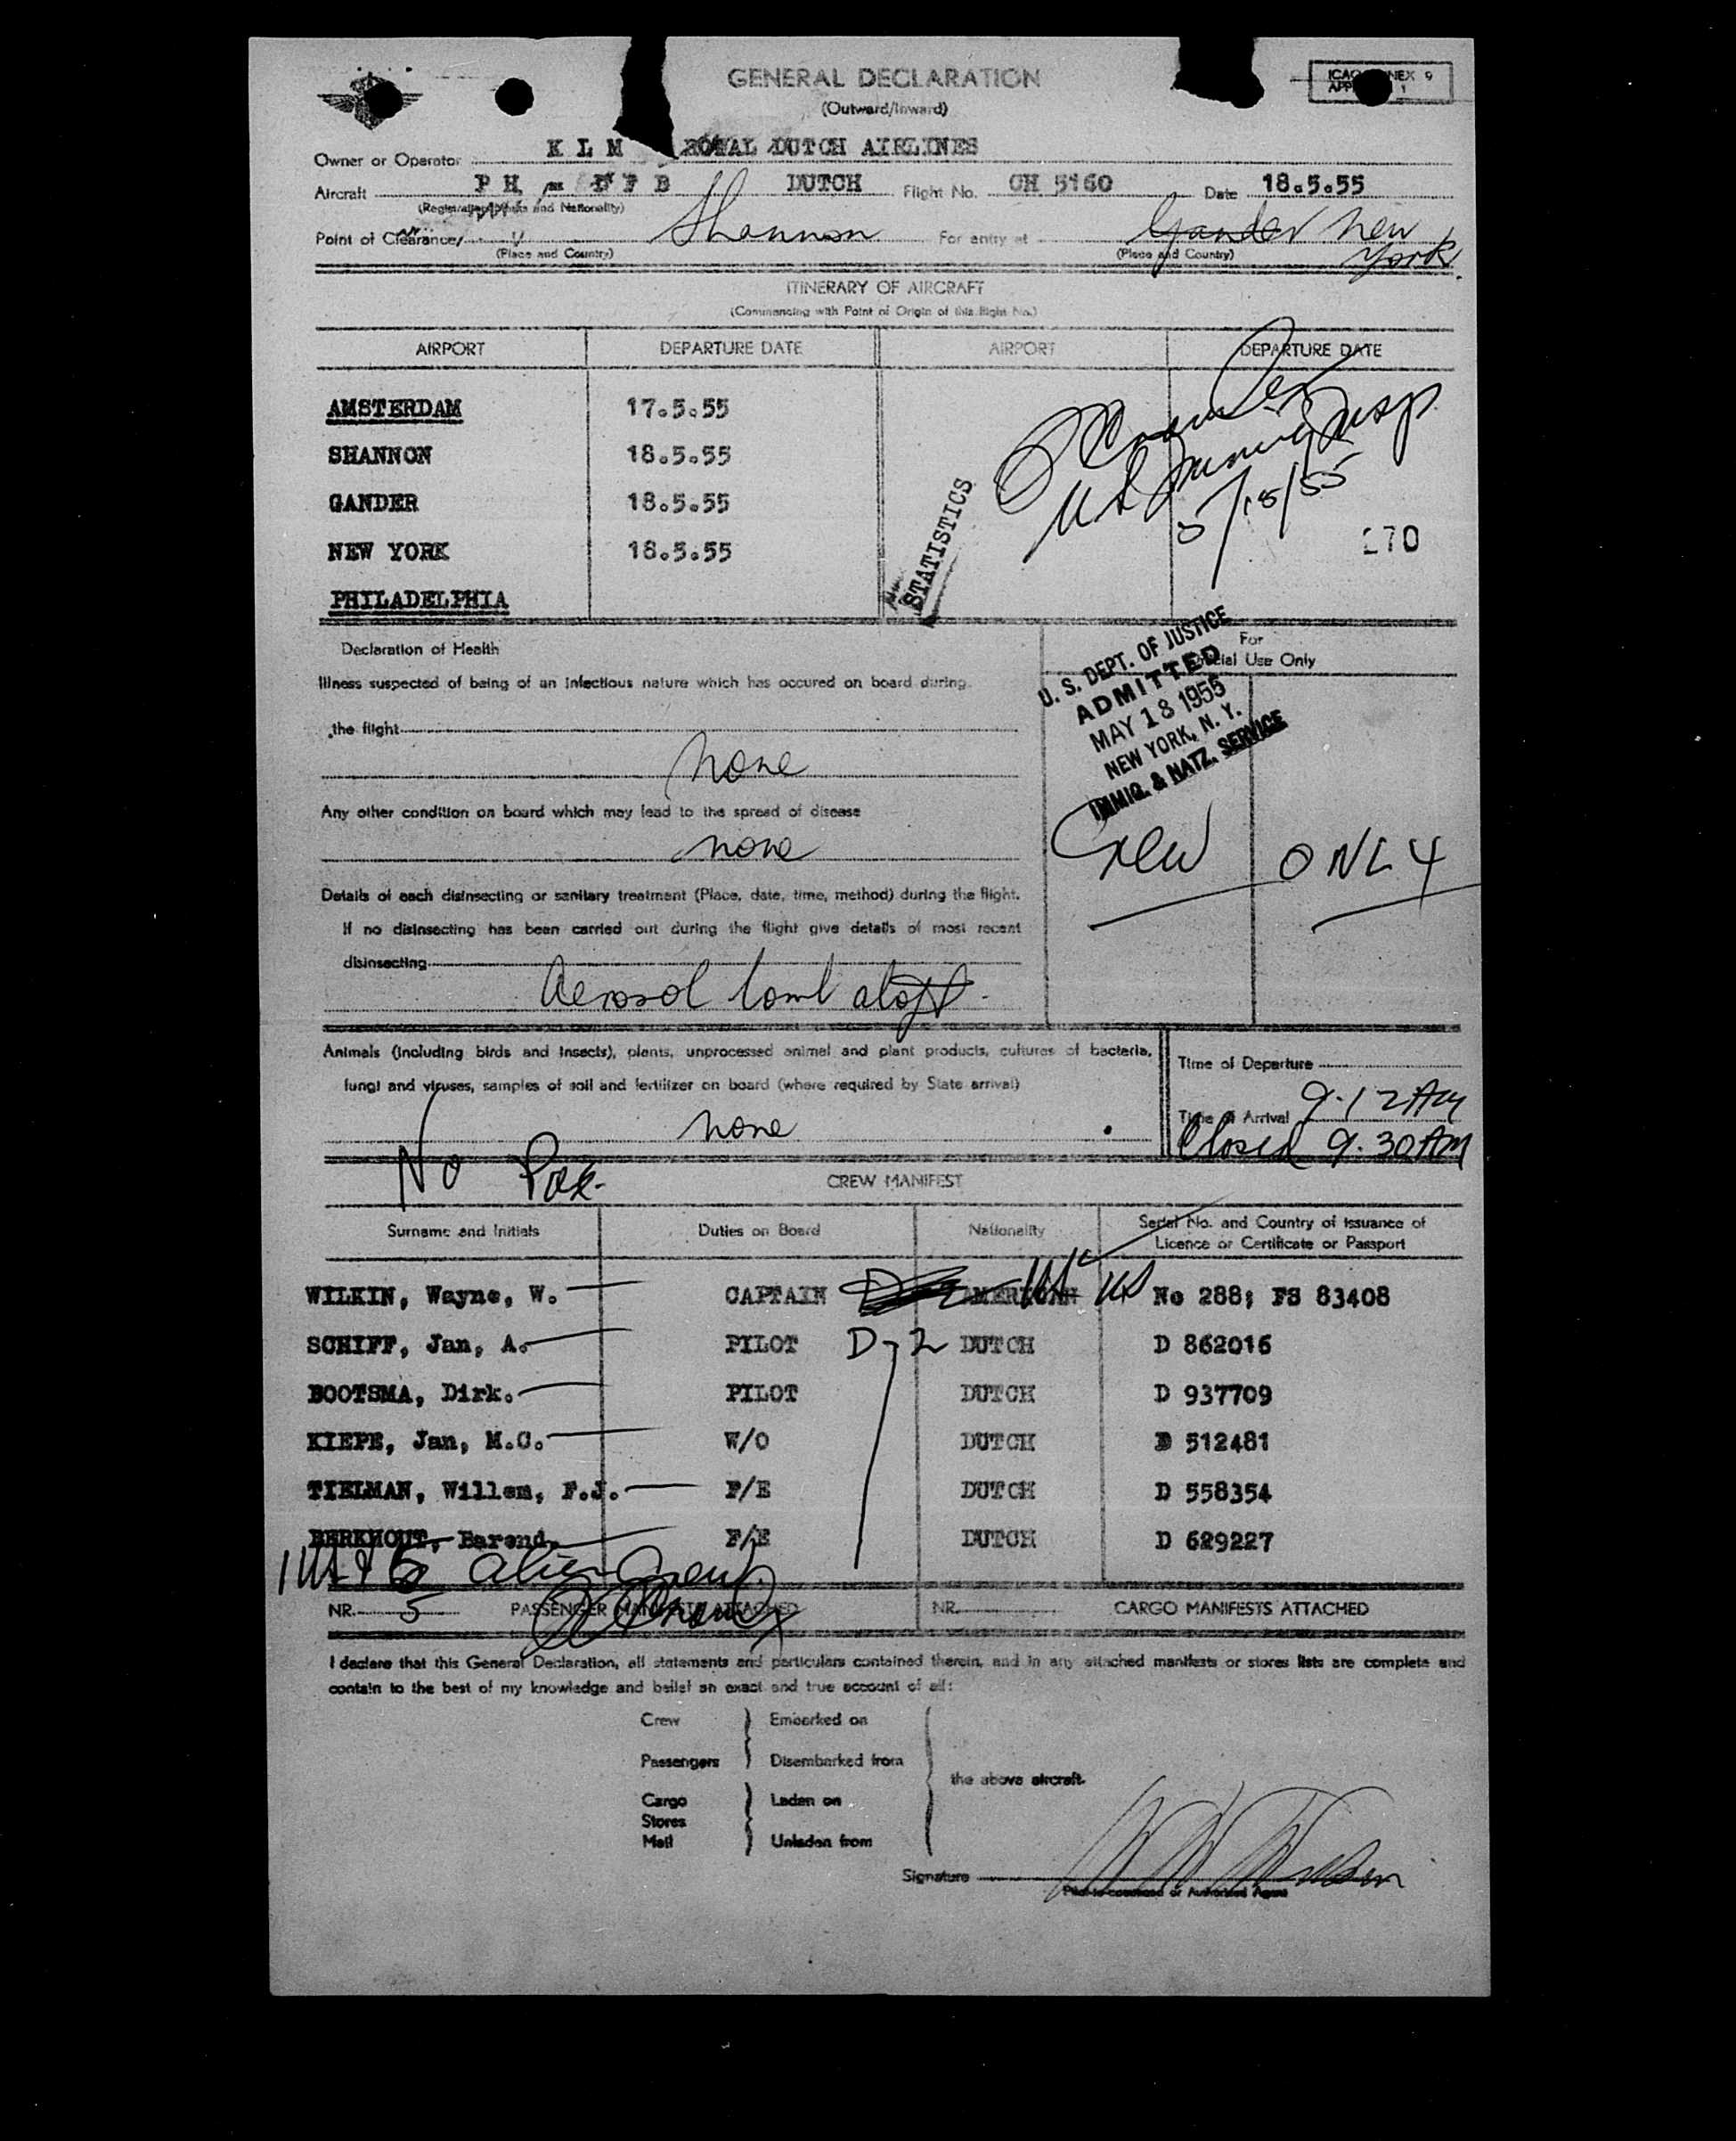 GENERAL DECLARATION
(Outward/Inward)
ICAO ANNEX 9
APP 1
Owner or Operator K L M ROYAL DUTCH AIRLINES
Aircraft P H - D F B DUTCH Flight No. CH 5160 Date 18.5.55
(Registration Marks and Nationality)
Point of Clearance/ Shannon For entry at Gander New York.
(Place and Country) (Place and Country)
ITINERARY OF AIRCRAFT
(Commencing with Point of Origin of this flight No.)
AIRPORT DEPARTURE DATE AIRPORT DEPARTURE DATE
AMSTERDAM 17.5.55
SHANNON 18.5.55
GANDER 18.5.55
NEW YORK 18.5.55
PHILADELPHIA
STATISTICS
5/18/55
270
Declaration of Health
For
Official Use Only
Illness suspected of being of an infectious nature which has occured on board during
the flight
none
U. S. DEPT. OF JUSTICE
ADMITTED
MAY 18 1955
NEW YORK, N. Y.
IMMIG. & NATZ. SERVICE
Any other condition on board which may lead to the spread of disease
none
Crew ONLY
Details of each disinsecting or sanitary treatment (Place, date, time, method) during the flight.
If no disinsecting has been carried out during the flight give details of most recent
disinsecting
Aerosol bomb aloft.
Animals (including birds and insects), plants, unprocessed animal and plant products, cultures of bacteria,
fungi and viruses, samples of soil and fertilizer on board (where required by State arrival)
none
Time of Departure
Time of Arrival 9.12 AM
Closed 9.30 AM
No Pax.
CREW MANIFEST
Surname and Initials Duties on Board Nationality Serial No. and Country of Issuance of Licence or Certificate or Passport
WILKIN, Wayne, W. CAPTAIN AMERICAN US No 288; FS 83408
SCHIFF, Jan, A. PILOT D-2 DUTCH D 862016
BOOTSMA, Dirk. PILOT DUTCH D 937709
KIEPE, Jan, M.C. W/O DUTCH D 512481
TIELMAN, Willem, F.J. F/E DUTCH D 558354
BERKHOUT, Barend. F/E DUTCH D 629227
1 US & 5 alien crew.
NR. 5 PASSENGER MANIFESTS ATTACHED NR. CARGO MANIFESTS ATTACHED
I declare that this General Declaration, all statements and particulars contained therein, and in any attached manifests or stores lists are complete and
contain to the best of my knowledge and belief an exact and true account of all:
Crew Embarked on
Passengers Disembarked from
the above aircraft.
Cargo Laden on
Stores
Mail Unladen from
Signature
Pilot-in-command or Authorized Agent